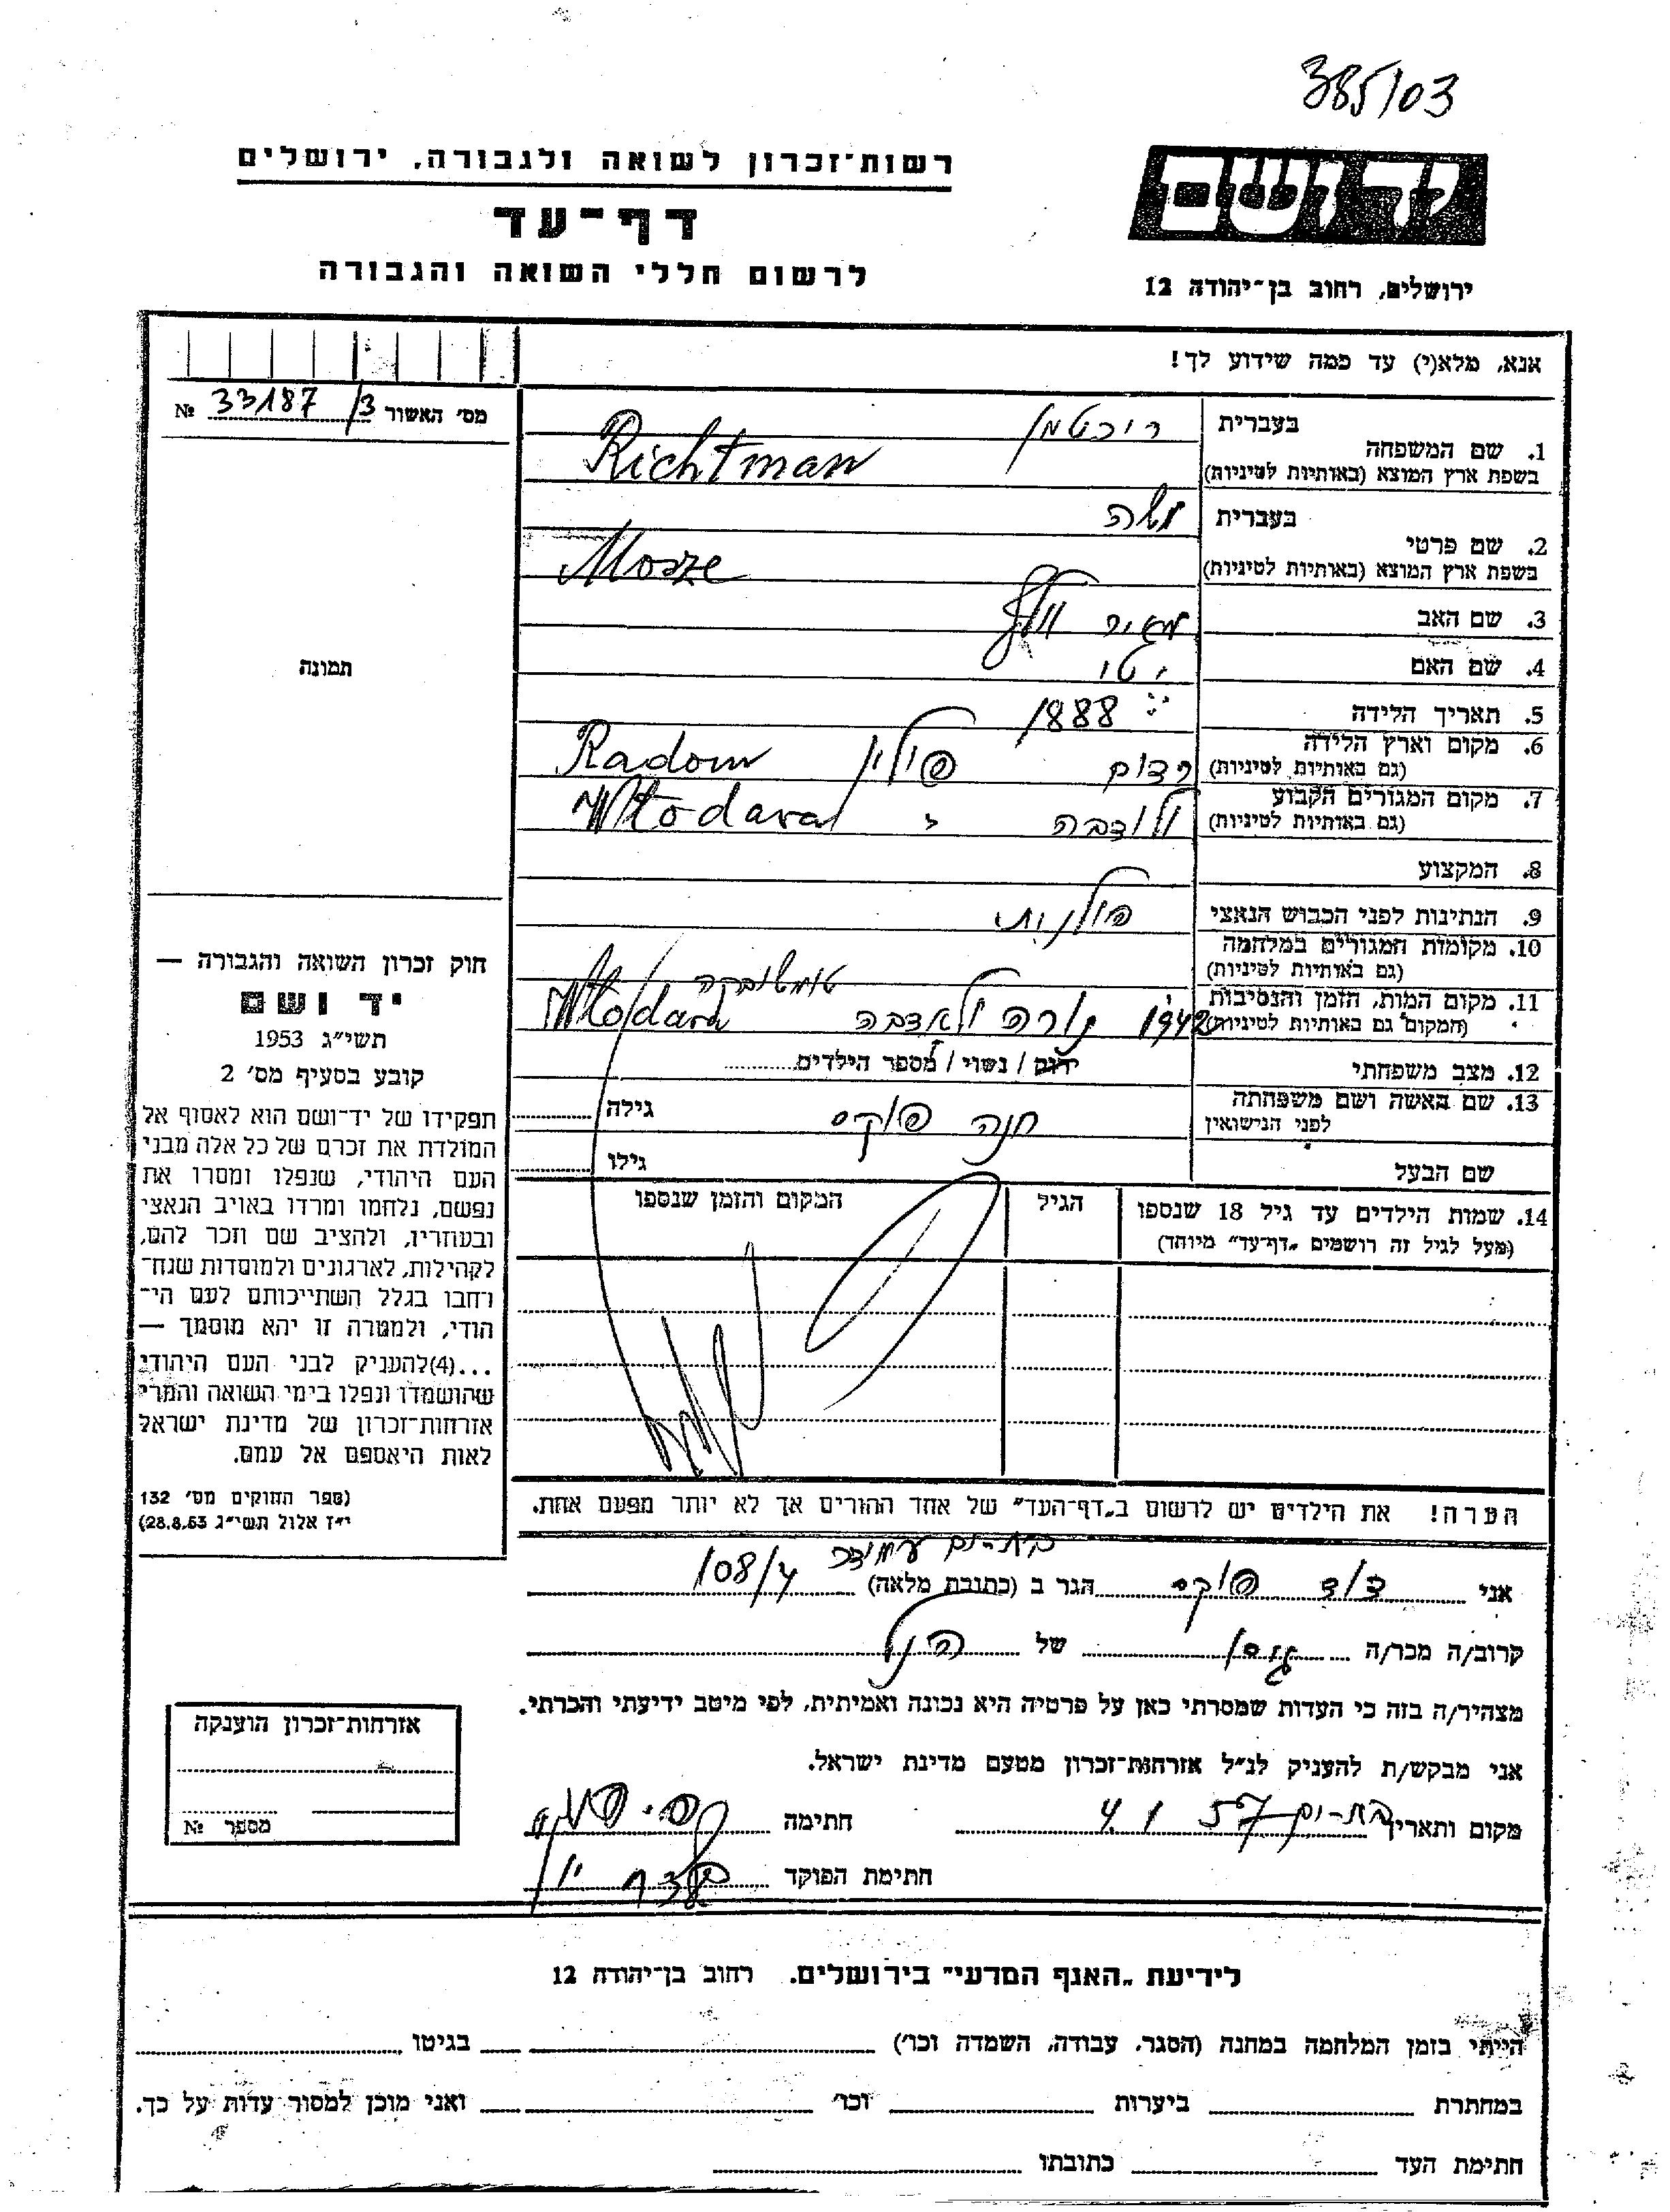 385/03
רשות־זכרון לשואה ולגבורה, ירושלים
דף־עד
לרשום חללי השואה והגבורה
יד ושם
ירושלים, רחוב בן־יהודה 12
אנא, מלא(י) עד כמה שידוע לך!
מס׳ האשור 33187/3 №
תמונה
1. שם המשפחה
בעברית ריכטמן
בשפת ארץ המוצא (באותיות לטיניות) Richtman
2. שם פרטי
בעברית משה
בשפת ארץ המוצא (באותיות לטיניות) Mosze
3. שם האב מאיר וולף
4. שם האם יטי
5. תאריך הלידה 1888
6. מקום וארץ הלידה
(גם באותיות לטיניות) רדום פולין Radom
7. מקום המגורים הקבוע
(גם באותיות לטיניות)
8. המקצוע
9. הנתינות לפני הכבוש הנאצי פולנית
10. מקומות המגורים במלחמה
(גם באותיות לטיניות)
11. מקום המות, הזמן והנסיבות
(המקום גם באותיות לטיניות) 1942
12. מצב משפחתי ידוע / נשוי / מספר הילדים
13. שם האשה ושם משפחתה
לפני הנישואין חנה פוקס גילה
שם הבעל גילו
14. שמות הילדים עד גיל 18 שנספו
(מעל לגיל זה רושמים „דף־עד״ מיוחד)
הגיל
המקום והזמן שנספו
חוק זכרון השואה והגבורה —
יד ושם
תשי״ג 1953
קובע בסעיף מס׳ 2
תפקידו של יד־ושם הוא לאסוף אל
המולדת את זכרם של כל אלה מבני
העם היהודי, שנפלו ומסרו את
נפשם, נלחמו ומרדו באויב הנאצי
ובעוזריו, ולהציב שם וזכר להם,
לקהילות, לארגונים ולמוסדות שנח־
רחבו בגלל השתייכותם לעם הי־
הודי, ולמטרה זו יהא מוסמך —
...(4)להעניק לבני העם היהודי
שהושמדו ונפלו בימי השואה והמרי
אזרחות־זכרון של מדינת ישראל
לאות היאספם אל עמם.
(ספר החוקים מס׳ 132
י״ז אלול תשי״ג 28.8.53)
הערה! את הילדים יש לרשום ב„דף־העד״ של אחד ההורים אך לא יותר מפעם אחת.
אני דוד פוקס הגר ב (כתובת מלאה) 108/4
קרוב/ה מכר/ה גיסו של הנ״ל
מצהיר/ה בזה כי העדות שמסרתי כאן על פרטיה היא נכונה ואמיתית, לפי מיטב ידיעתי והכרתי.
אני מבקש/ת להעניק לנ״ל אזרחות־זכרון מטעם מדינת ישראל.
מקום ותאריך בת־ים 4 1 57 חתימה
חתימת הפוקד
אזרחות־זכרון הוענקה
מספר №
לידיעת „האגף המדעי״ בירושלים. רחוב בן־יהודה 12
הייתי בזמן המלחמה במחנה (הסגר, עבודה, השמדה וכו׳) בגיטו
במחתרת ביערות וכו׳ ואני מוכן למסור עדות על כך.
חתימת העד כתובתו